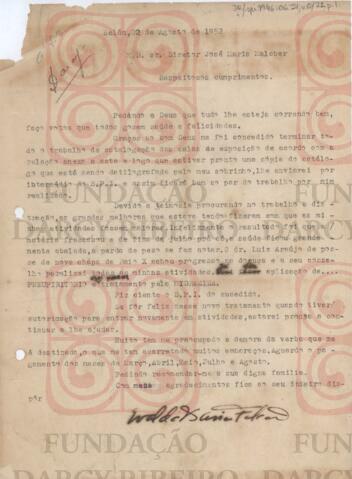 Belém, 22 de Agosto de 1952
Sr. Diretor José Maria Malcher
Respeitosos cumprimentos.
Pedindo a Deus que tudo lhe esteja correndo bem,
faço votos que todos gozem saúde e felicidades.
Graças ao bom Deus me foi concedido terminar to
do o trabalho de catalogação das salas de exposição de acordo com a
relação anexa a este e logo que estiver pronto uma cópia do catálo
go que está sendo datilografado pelo meu sobrinho, lhe enviarei por
intermédio do S.P.I. ao par do trabalho por mim
realizado.
Devido a teimosia procurando no trabalho a dis
tração, as grandes melhoras que
atividades fossem maiores. Infelizmente o resultado foi
de fins de julho para cá, a saúde fícou grande
mente abalada, a perda de peso se faz notar. O dr. Luiz Araújo de pos
se de nova chapa de Raio X achou progresso na doença e a seu conse
lho paralisei todas as minhas atividades. aplicação de....
tratamento pela HIDRAZIDA.
Fiz ciente o S.P.I. do sucedido.
Se fôr feliz nesse novo tratamento quando tiver
autorização para entrar novamente em atividades, estarei pronto a con
tinuar a lhe ajudar.
Muito tem me preocupado a demora da verba que me
é destinada, o que me tem acarretado muitos embaraços. Aguardo o pa
gamento dos meses de Março, Abril, Maio, Julho e Agosto.
Pedindo recomendar-me a sua digna família.
Com meus agradecimentos fico ao seu inteiro dis
pôr
FUNDAÇÃO
DARCY RIBEIRO
FUNDAÇÃO
DARCY RIBEIRO